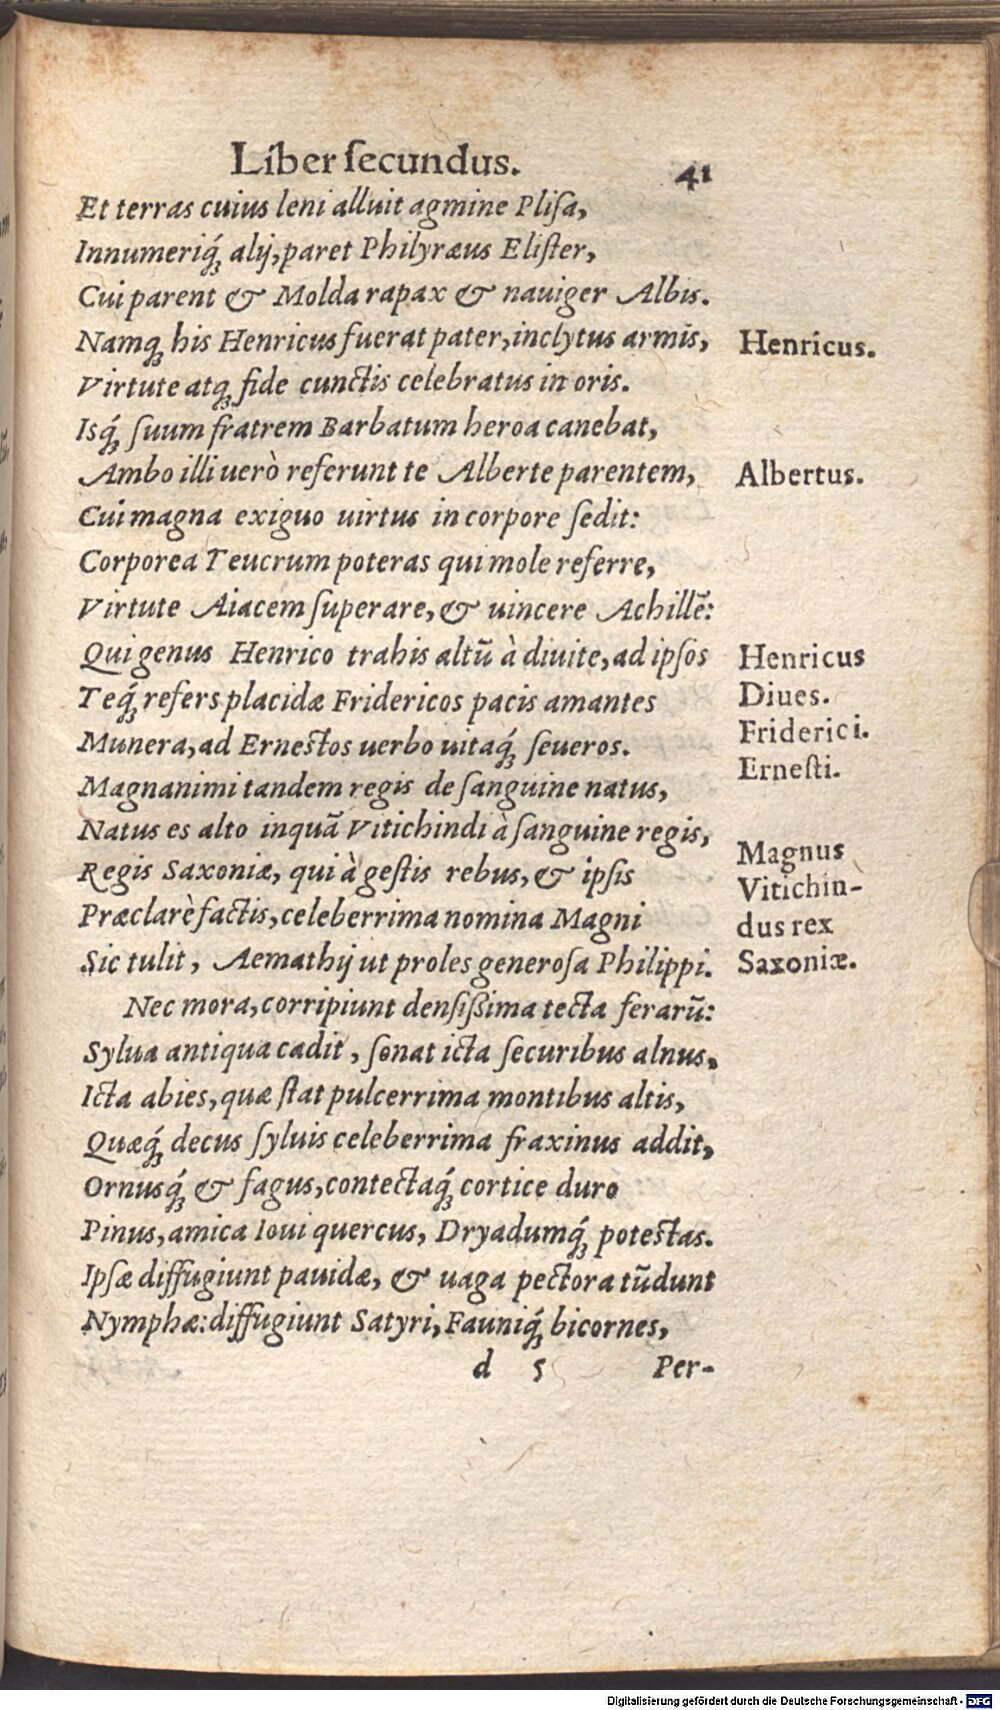 Liber ſecundus. 41
Et terras cuius leni alluit agmine Pliſa,
Innumeriq́ꝫ alij, paret Philyræus Eliſter,
Cui parent & Molda rapax & nauiger Albis.
Namqꝫ his Henricus fuerat pater, inclytus armis, Henricus.
Virtute atqꝫ fide cunctis celebratus in oris.
Isq́ꝫ ſuum fratrem Barbatum heroa canebat,
Ambo illi uerò referunt te Alberte parentem, Albertus.
Cui magna exiguo uirtus in corpore ſedit:
Corporea Teucrum poteras qui mole referre,
Virtute Aiacem ſuperare, & uincere Achillẽ:
Qui genus Henrico trahis altũ à diuite, ad ipſos Henricus
Teq́ꝫ refers placidæ Fridericos pacis amantes Diues.
Munera, ad Ernestos uerbo uitaq́ꝫ ſeueros. Friderici.
Magnanimi tandem regis de ſanguine natus, Erneſti.
Natus es alto inquã Vitichindi à ſanguine regis,
Regis Saxoniæ, qui à geſtis rebus, & ipſis Magnus
Præclarè factis, celeberrima nomina Magni Vitichin-
dus rex
Sic tulit, Aemathij ut proles generoſa Philippi. Saxoniæ.
Nec mora, corripiunt denſißima tecta ferarũ:
Sylua antiqua cadit, ſonat icta ſecuribus alnus,
Icta abies, quæ ſtat pulcerrima montibus altis,
Quæq́ꝫ decus ſyluis celeberrima fraxinus addit,
Ornusq́ꝫ & fagus, contectaq́ꝫ cortice duro
Pinus, amica Ioui quercus, Dryadumq́ꝫ potestas.
Ipſæ diffugiunt pauidæ, & uaga pectora tũdunt
Nymphæ: diffugiunt Satyri, Fauniq́ꝫ bicornes,
d 5 Per-
Digitalisierung gefördert durch die Deutsche Forschungsgemeinschaft - DFG